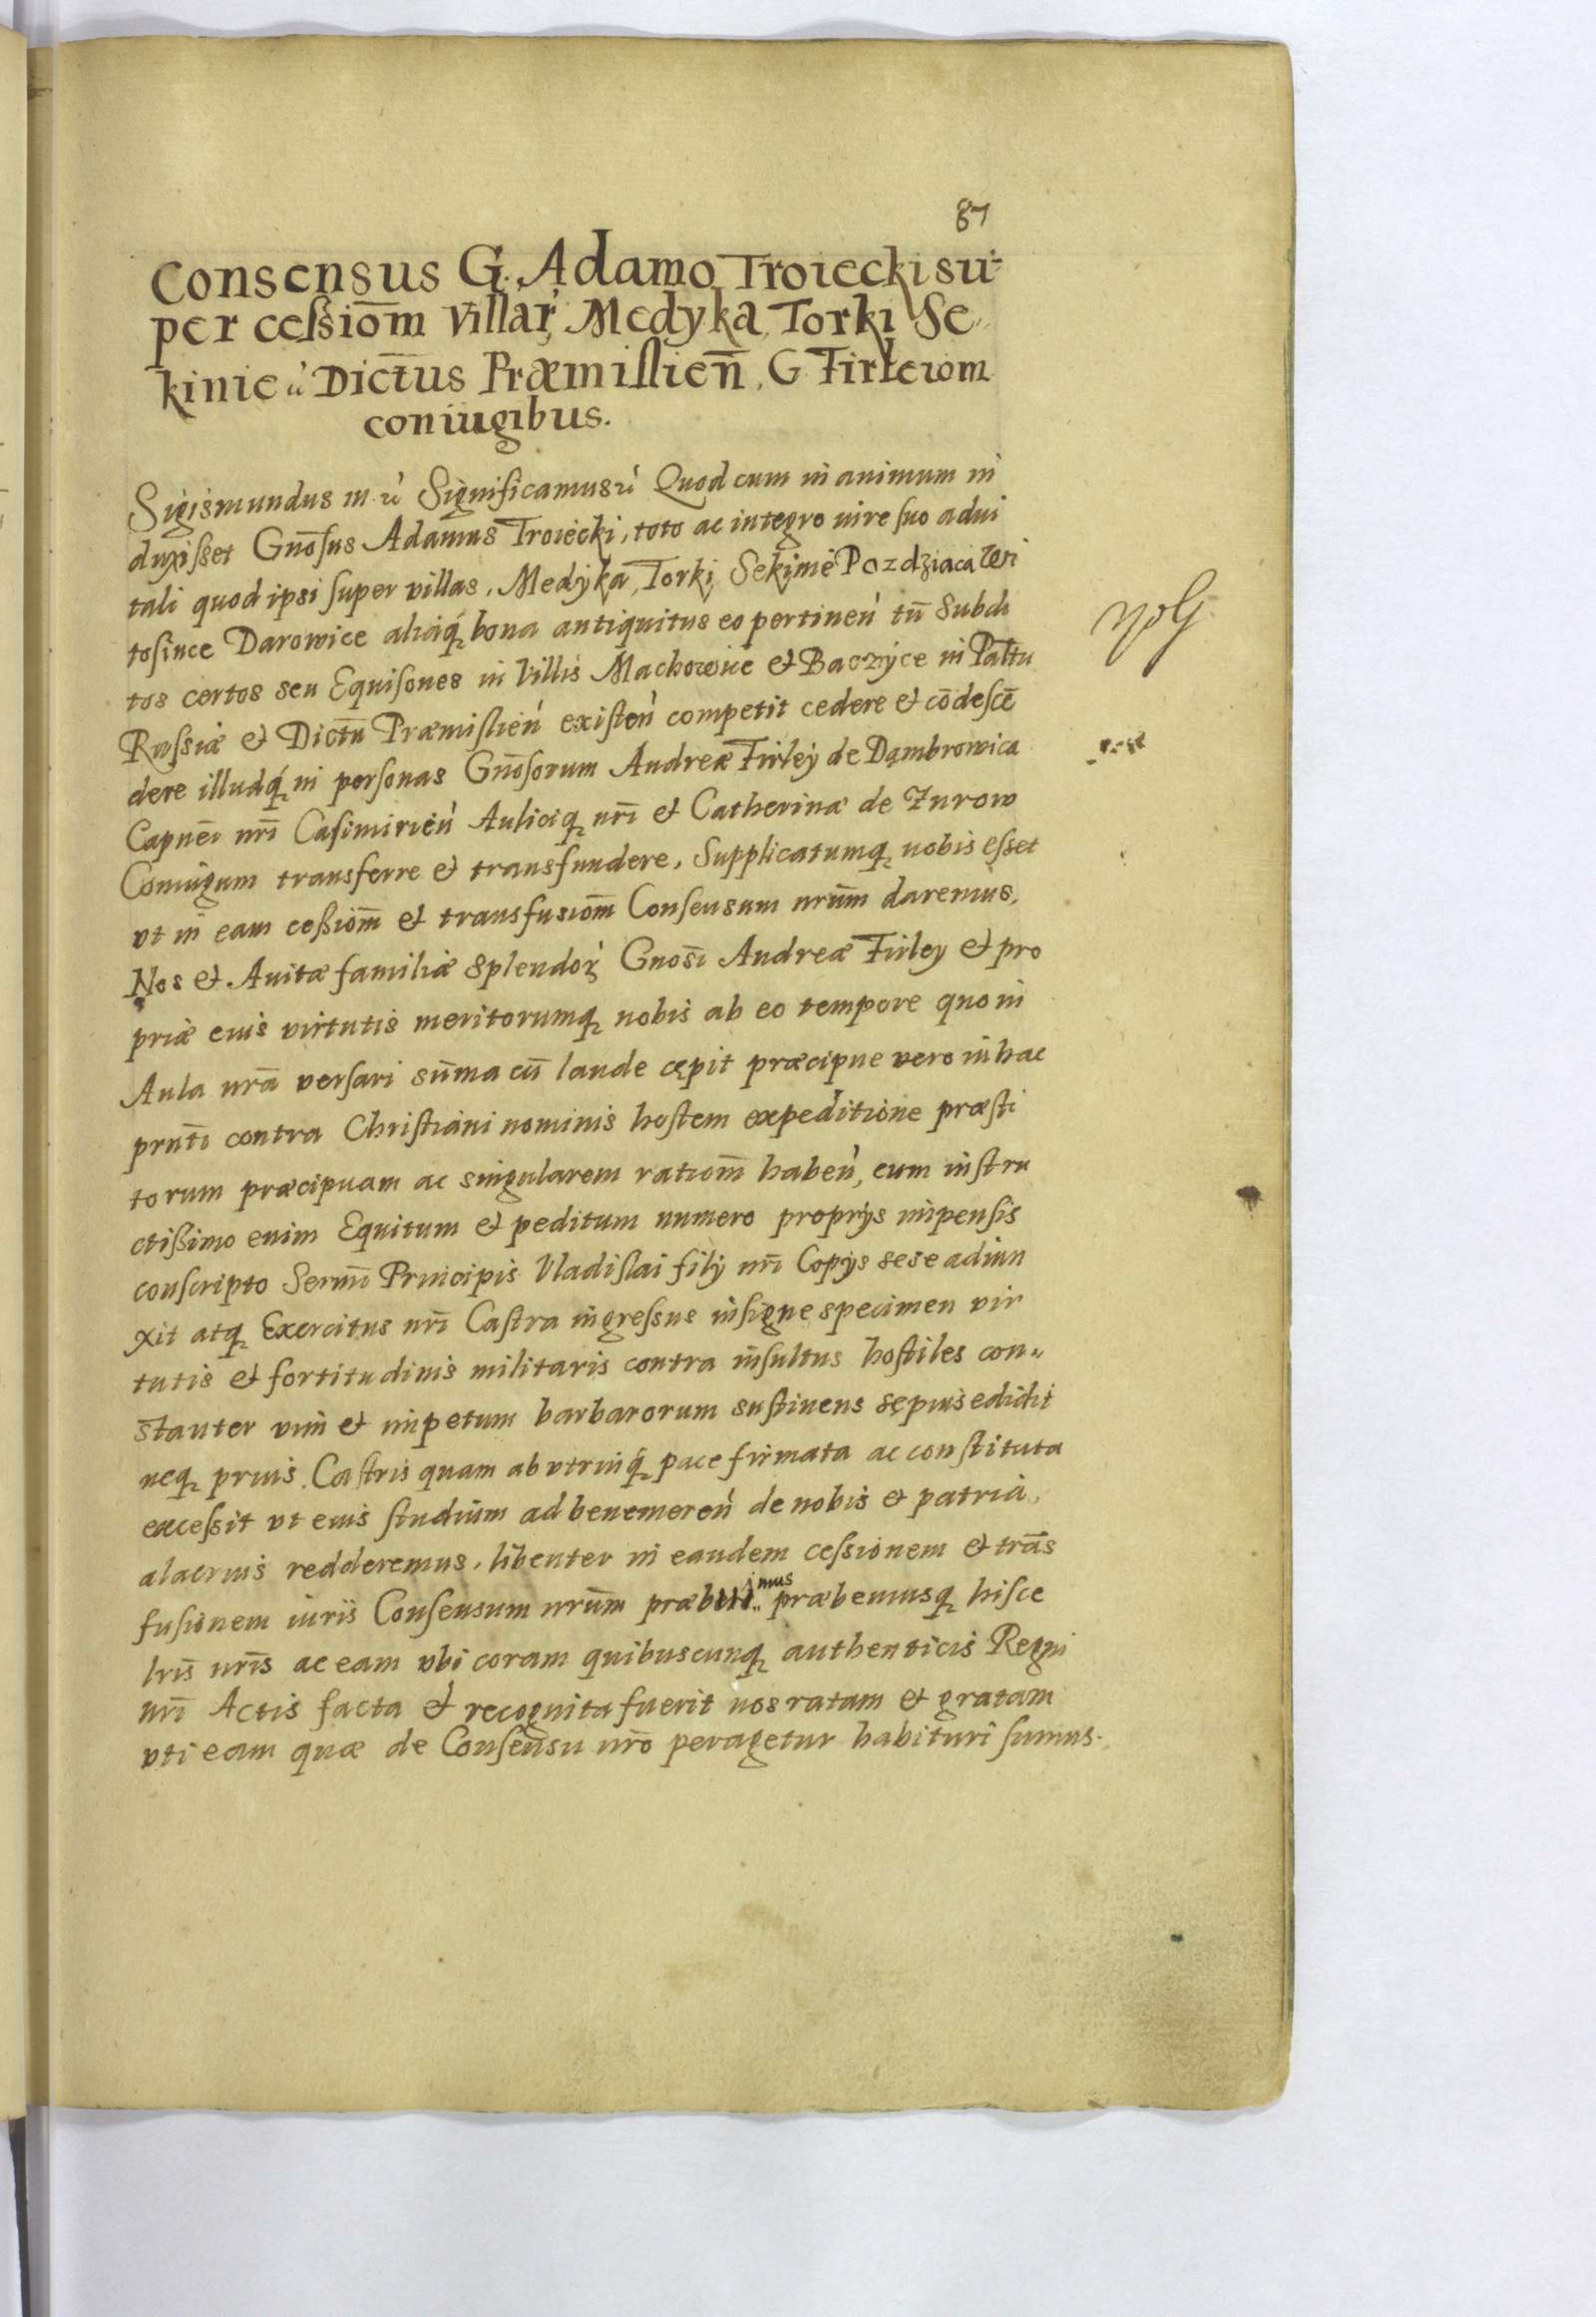 87
Consensus G. Adamo Troiecki su-
per cessiom̄ Villar̨ Medyka, Torki Se„
kinic ú Dict̄us Præmislien̄, G Firleiom
coniugibus.
Sigismundus III ú Significamus ú Quod cum in animum in
duxisset Gnōsus Adamus Troiecki, toto ac integro iure suo advi
tali quod ipsi super villas, Medyka, Torki Sekinie Pozdziacz
tosince Darowice aliaq́ bona antiquitus eo pertinen̄ tū Subdi
tos certos seu Equisones in Villis Mackowice et Baczyce in Paltu
Russiæ et Dictu Præmislien̄ existen̄ competit cedere et cōdescē
dere illudq́ in personas Gnōsorum Andreæ Firley de Dąmbrowica
Capnēi nrī Casimirien̄ Auliciq nrī et Catherinæ de Zurow
Coniugum transferre et transfundere, Supplicatumq nobis esset
vt in eam cessiom̄ et transfusiom̄ Consensum nrūm daremus.
Nos et Avitæ familiæ splendor̨ Gnosī Andreæ Firley et pro
priæ eius virtutis meritorumq nobis ab eo tempore quo in
Aula nrā versari sūma cū laude cępit præcipue vero in hac
prntī contra Christiani nominis hostem expeditione præsti
torum præcipuam ac singularem ratiom̄ haben̄, cum instru
ctissimo enim Equitum et peditum numero proprijs impensis
conscripto Sermī Principis Vladislai filij nrī Copijs sese adiun
xit atq Exercitus nrī Castra ingressus insigne specimen vir
tutis et fortitudinis militaris contra insultus hostiles con„
stanter vim et impetum barbarorum sustinens sępius edidit
neq prius Castris quam ab vtrinq́ pace firmata ac constituta
excessit vt eius studium ad benemeren̄ de nobis et patria,
alacrius redderemus, libenter in eandem cessionem et trās
fusionem iuris Consensum nrūm præbuimus præbemusq hisce
lrīs nrīs ac eam vbi coram quibuscunq authenticis Regni
nrī Actis facta et recognita fuerit nos ratam et gratam
vti eam quæ de Consensu nrō peragetur habituri sumus.